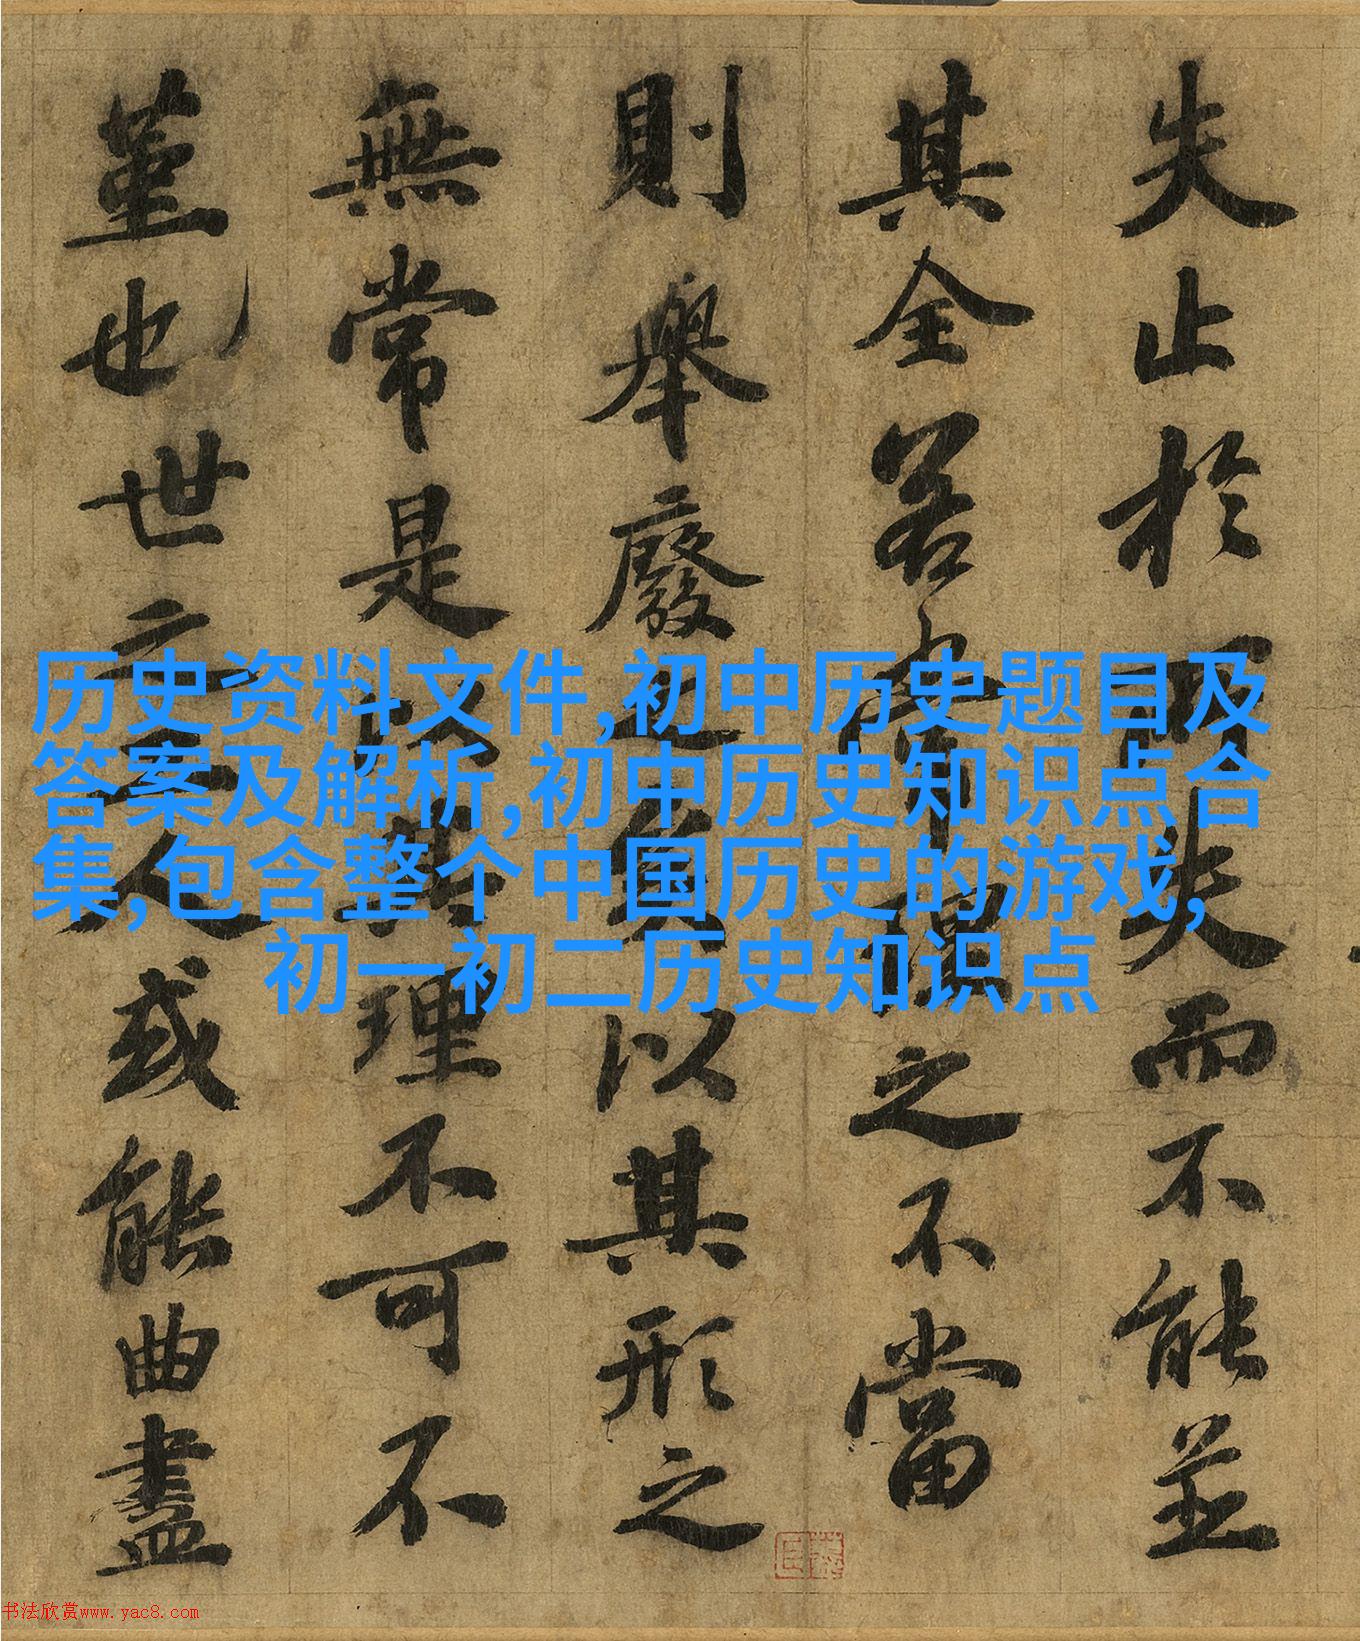 失止於所失而不能並
其全若常理之不當
則舉廢之矣以其形之
無常是以其理不可不
堇也世之工人或能曲盡
历史资料文件,初中历史题目及
答案及解析,初中历史知识点合
集,包含整个中国历史的游戏,
初一初二历史知识点
书法欣赏www.yac8.com